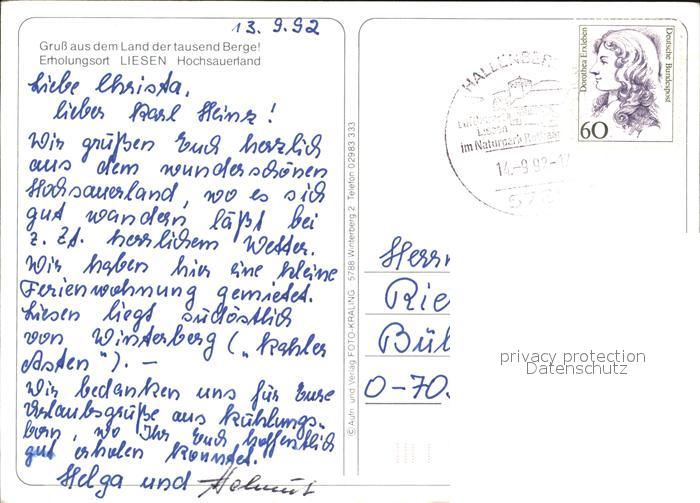 13.9.92
Gruß aus dem Land der tausend Berge!
Erholungsort LIESEN Hochsauerland
Liebe Christa,
lieber Karl Heinz!
Wir grüßen Euch herzlich
aus dem wunderschönen
Hochsauerland, wo es sich
gut wandern läßt bei
z. Zt. herrlichem Wetter.
Wir haben hier eine kleine
Ferienwohnung gemietet.
Liesen liegt südöstlich
von Winterberg („Kahler
Asten“). —
Wir bedanken uns für Eure
Urlaubsgrüße aus Kühlungs-
born, wo Ihr Euch hoffentlich
gut erholen konntet.
Helga und Helmut
© Aufn. und Verlag FOTO-KRALING 5788 Winterberg 2 Telefon 02983 333
HALLENBER
Liesen
im Naturpark Rothaar
14.-9.92-17
Dorothea Erxleben
Deutsche Bundespost
60
Herrn
Rie
Bül
O-70
privacy protection
Datenschutz